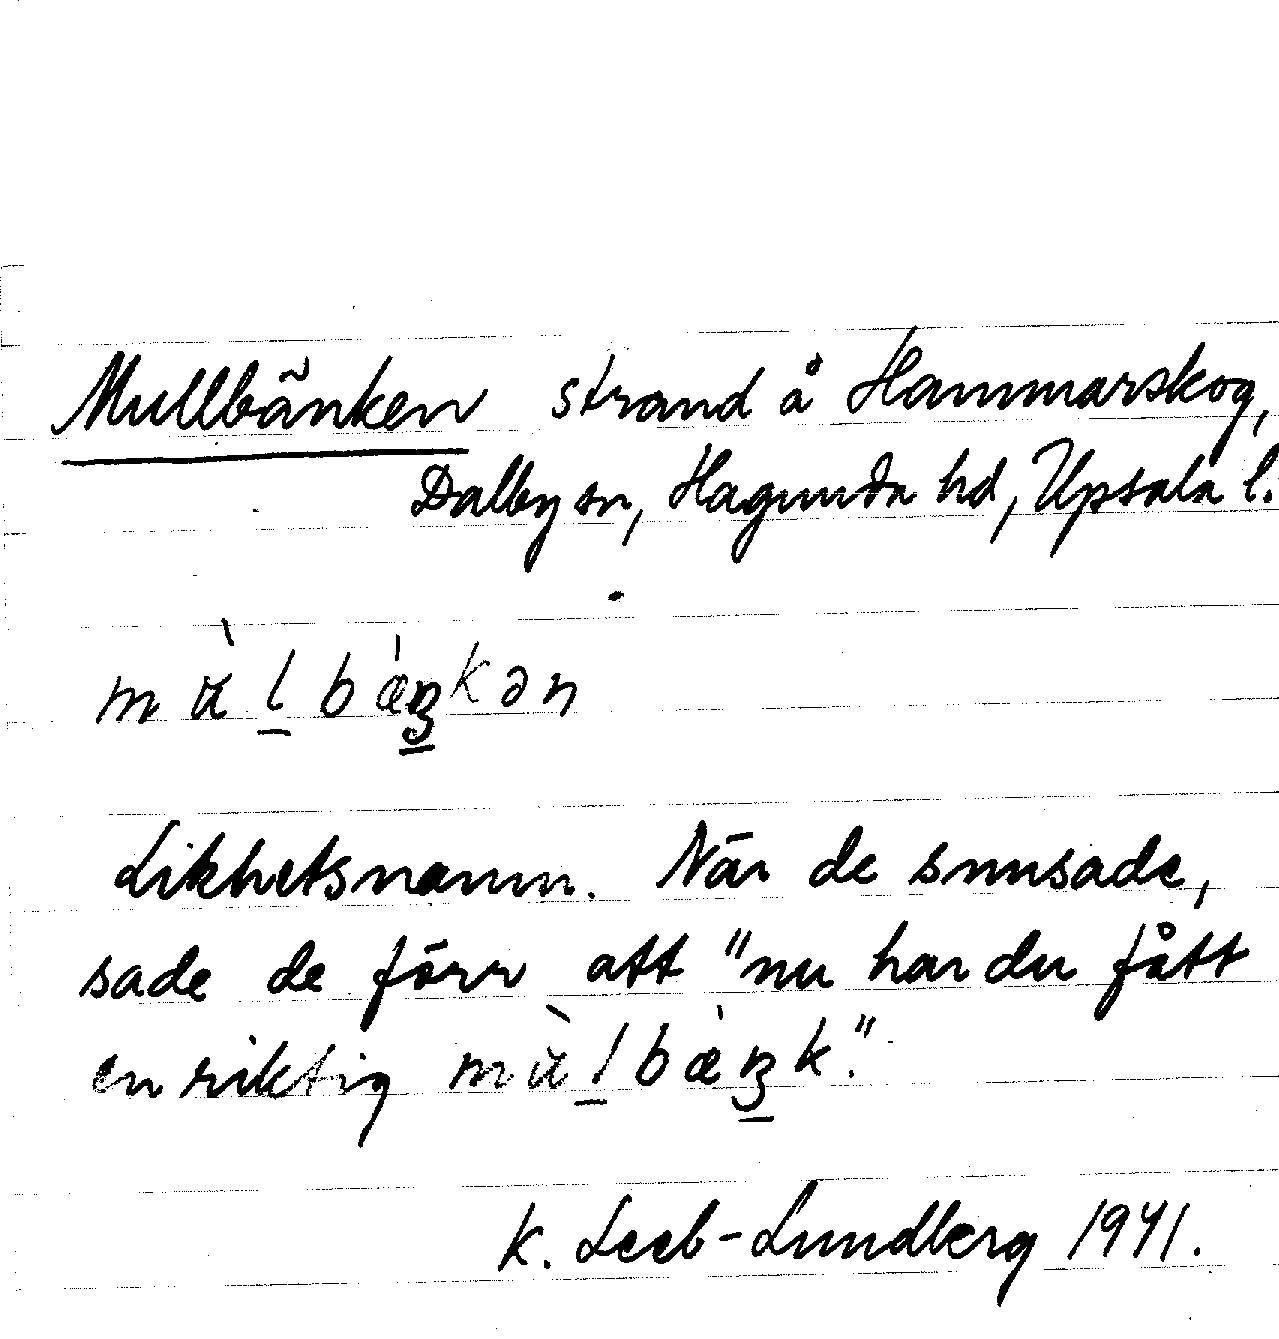 Mullbänken strand å Hammarskog,
Dalby sn, Hagunda hd, Upsala l.
Likhetsnamn. När de snusade,
sade de förr att "nu har du fått
en riktig
K. Leeb-Lundberg 1941.